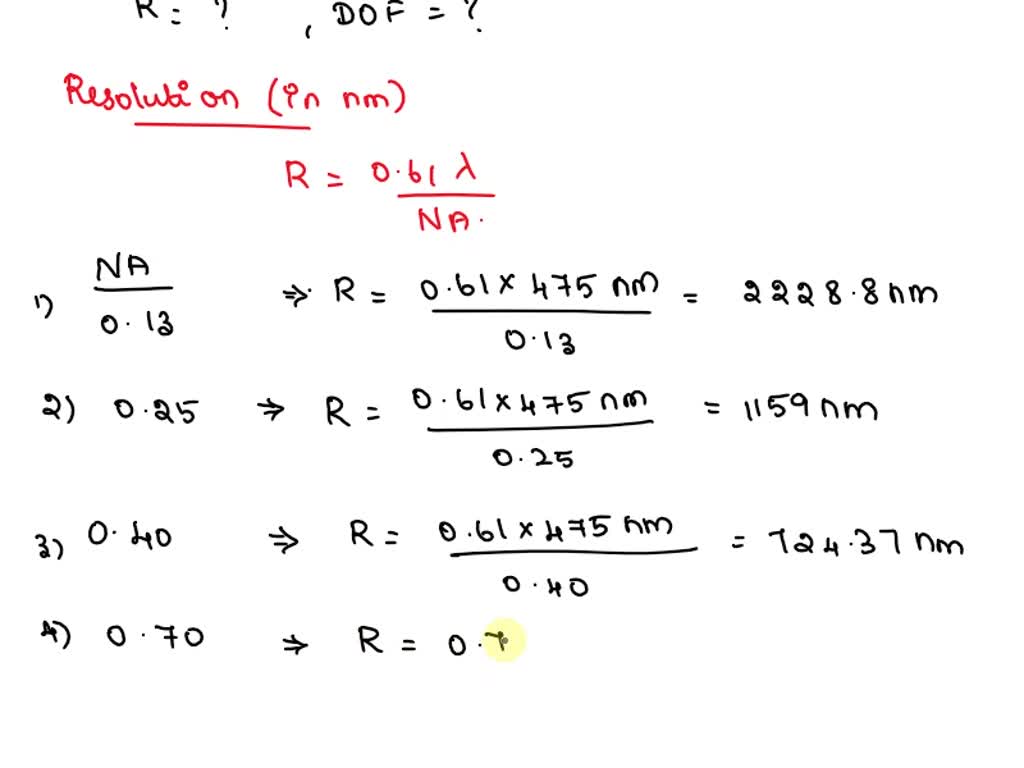 R = ? , DOF = ?
Resolution (in nm)
R = 0.61 λ
NA.
NA
1) 0.13 ⇒ R = 0.61 × 475 nm / 0.13 = 2228.8 nm
2) 0.25 ⇒ R = 0.61 × 475 nm / 0.25 = 1159 nm
3) 0.40 ⇒ R = 0.61 × 475 nm / 0.40 = 724.37 nm
4) 0.70 ⇒ R = 0.